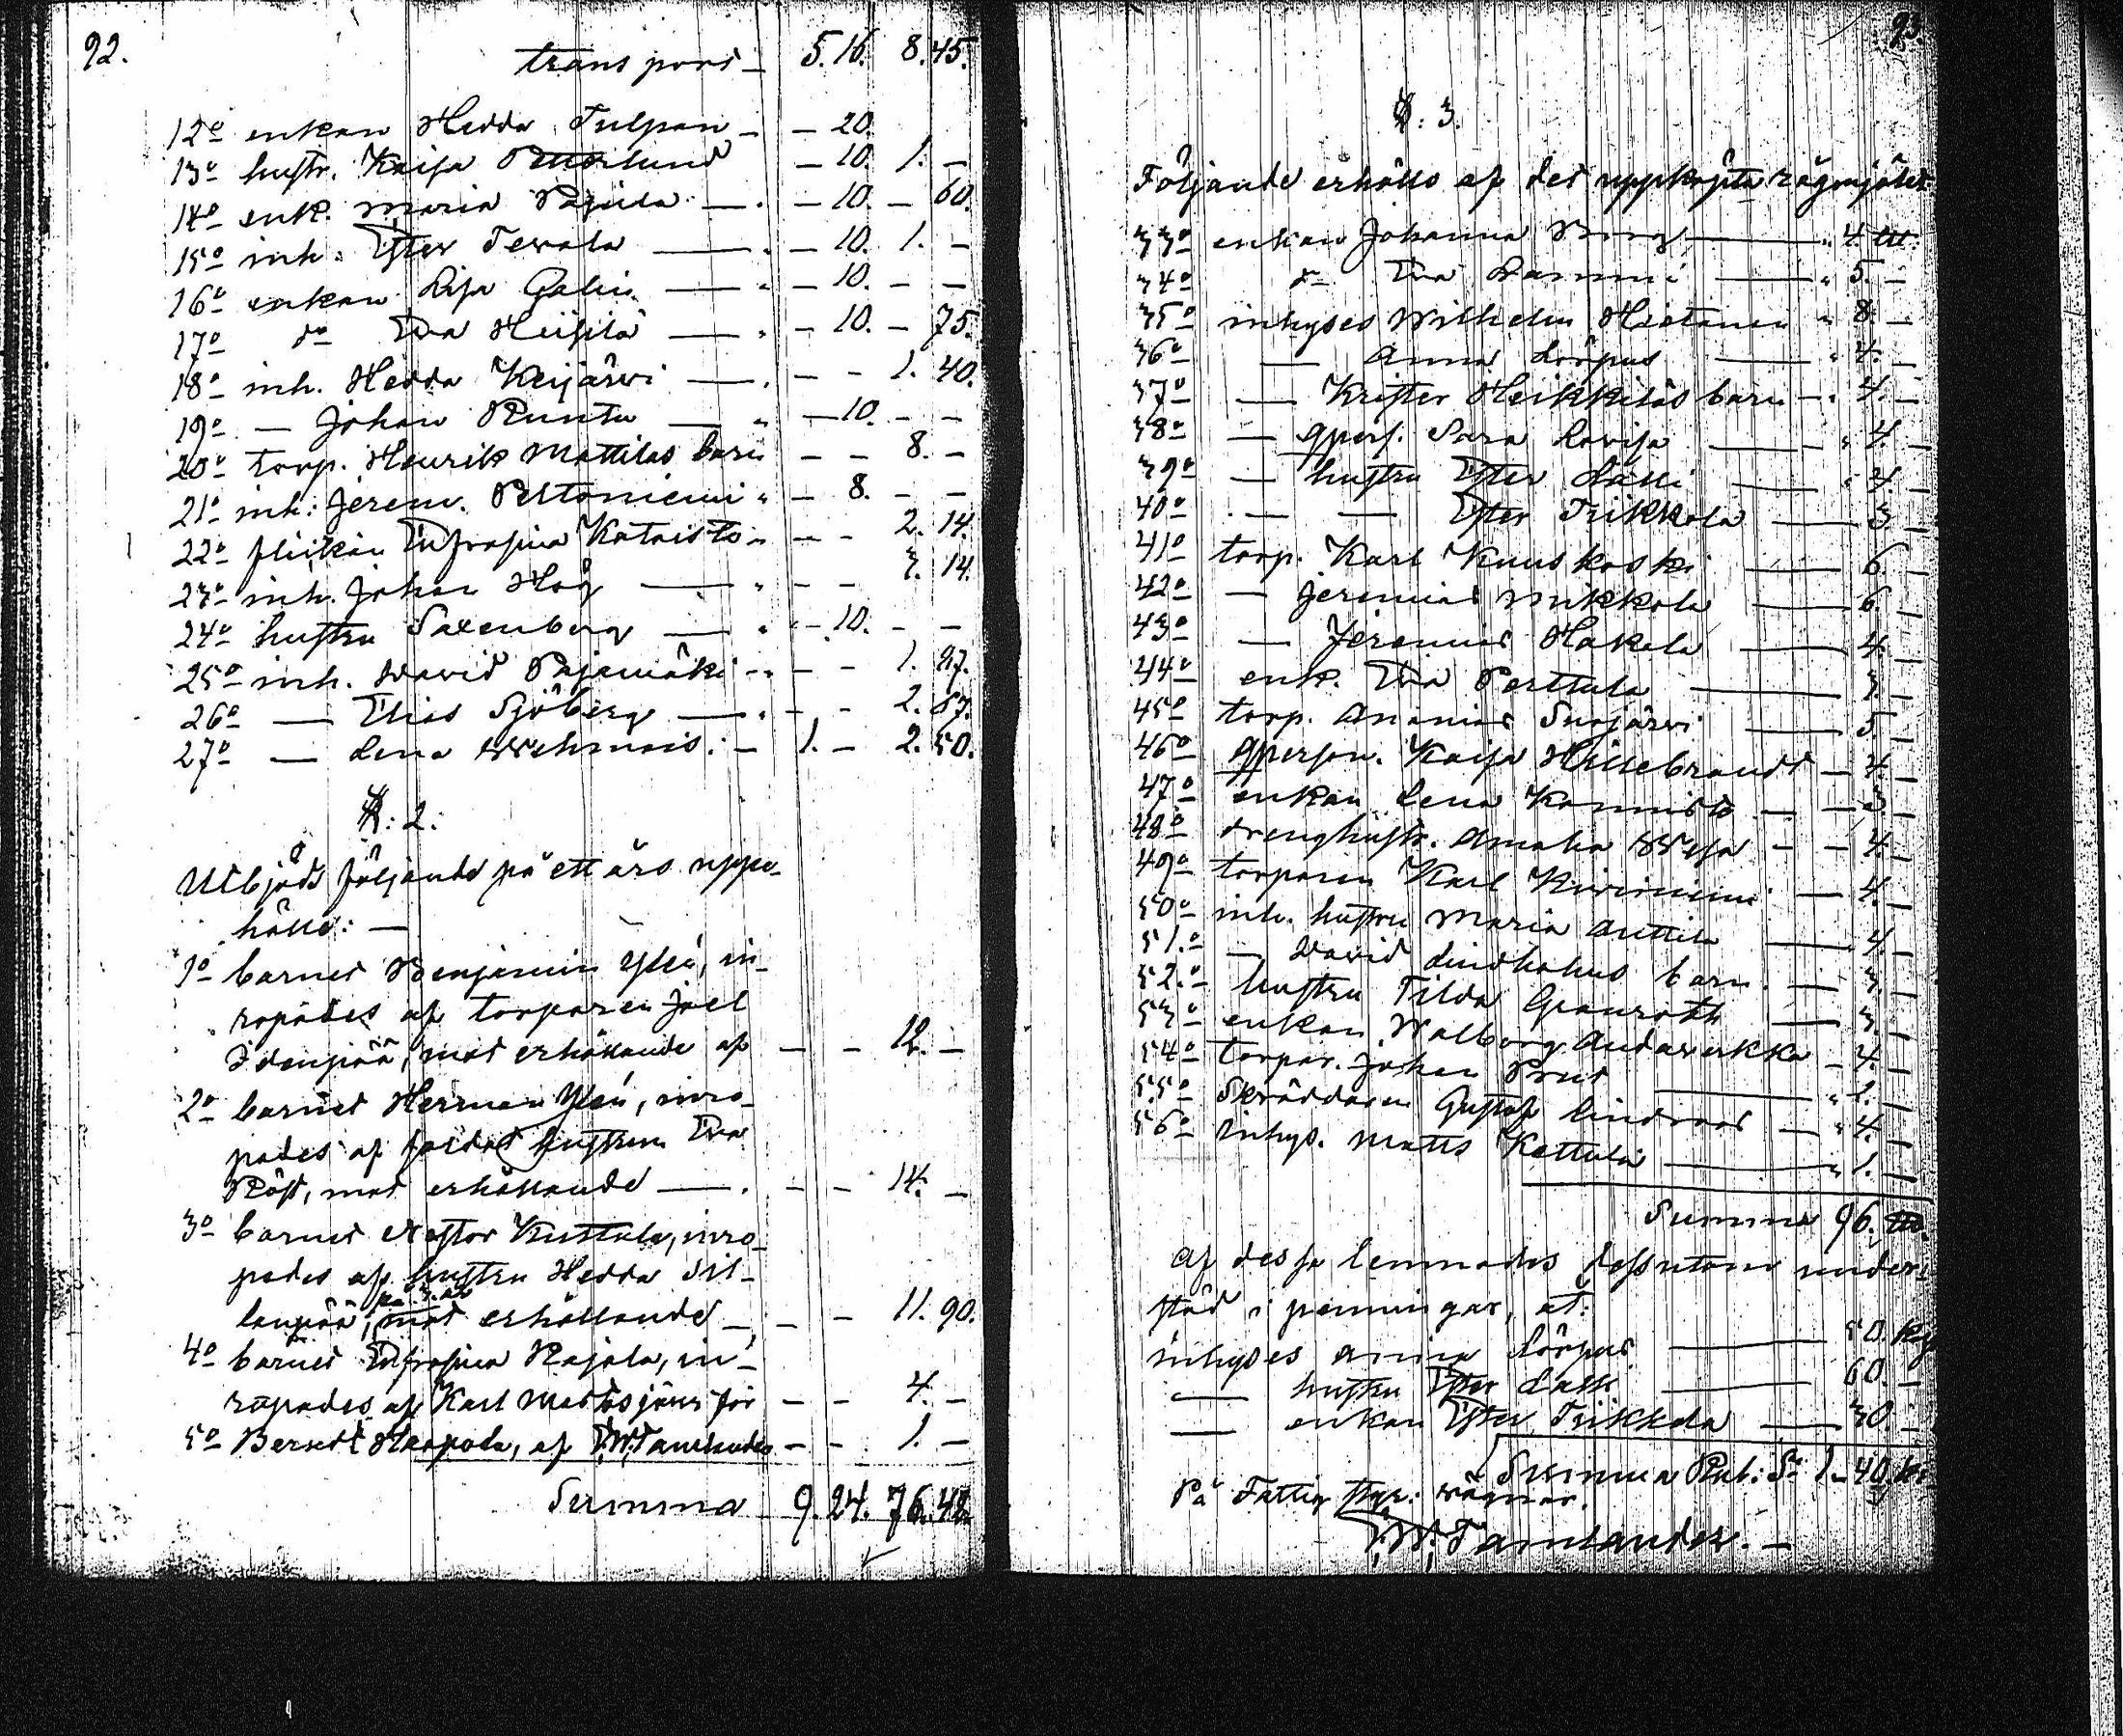 92.
transport 5. 16. 8. 45.
12o enkan Hedda Tulpan — – 20.
13o hustr. Kaisa Petterlund – 10. 1. –
14o enk. Maria Pajula — – 10. – 60.
15o inh. Ester Tervala — – 10. 1. –
16o enkan Lisa Galin — – 10. – –
17o do Eva Heisilä — – 10. – 75.
18o inh. Hedda Keijärvi — – – 1. 40.
19o — Johan Runtu — – 10. – –
20o torp. Henrik Mattilas barn – – 8. –
21o inh: Jerem. Peltoniemi – 8. – –
22o flickan Eufrosina Kataisto – – – 2. 14.
23o inh. Johan Hög — – – 3. 14.
24o hustru Saxenberg — – 10. – –
25o inh. David Pajamäki – – – 1. 97.
26o — Elias Sjöberg — – – 2. 67.
27o — Lena Wehmais: – 1. – 2. 50.
§: 2.
Utbjöds följande på ett års uppe-
hälle: —
1o barnet Benjamin Ylén, in-
ropades af torparen Joel
Idenpää, mot erhållande af – – 12. –
2o barnet Herman Ylén, inro-
pades af soldat hustrun Eva
Röst, mot erhållande — – – 14. –
3o barnet Nestor Knuttila, inro-
pades af hustru Hedda Sil-
lanpää, mot erhållande – – – 11. 90.
4o barnet Eufrosina Rajala, in-
ropades af Karl Mattsjäns för – – 4. –
5o Berndt Haapala, af F. W. Tamlander – – 1. –
Summa 9. 24. 76. 42.
93.
§: 3.
Följande erhöllo af det uppköpta rågmjölet
33o enkan Johanna Berg — 4 ℔.
34o do Eva Lammi — 5. –
35o inhyses Wilhelm Hietanen 8 –
36o — Anna Lörpus — 4. –
37o — Krister Heikkiläs barn – 4. –
38o — qpers. Sara Lovisa — 4 –
39o — hustru Ester Lalli — 4 –
40o — — Ester Triikkola — 3 –
41o torp. Karl Kuuskoski — 6. –
42o — Jeremias Mikkola — 6 –
43o — Jeremias Hakala — 4. –
44o enk. Eva Perttula — 3. –
45o torp. Ananias Suojärvi — 5 –
46o qperson. Kaisa Hillebrandt – 4. –
47o enkan Lena Kannisto — 3 –
48o drenghustr. Amalia Wesa – – 4. –
49o torparen Karl Kiviniemi — 4. –
50o inh. hustru Maria Anttila — 4. –
51.o — David Lindholms barn. — 3. –
52.o hustru Tilda Granroth — 3. –
53o enkan Walborg Andaverkka – 4. –
54o torpar. Johan Prut — 2. –
55o Skräddaren Gustaf Lindroos — 4. –
56o inhys. Matts Kettula — 1. –
Summa 96. ℔.
Af dessa lemnades dessutom under-
stöd i penningar, åt:
inhyses Anna Lörpus — 50. kop
— hustru Ester Lalli — 60. –
— enkan Ester Triikkola — 30 –
Summa Rub: Sr 1 – 40 ko
På Fattig styr: vägnar.
F. W. Tamlander. –